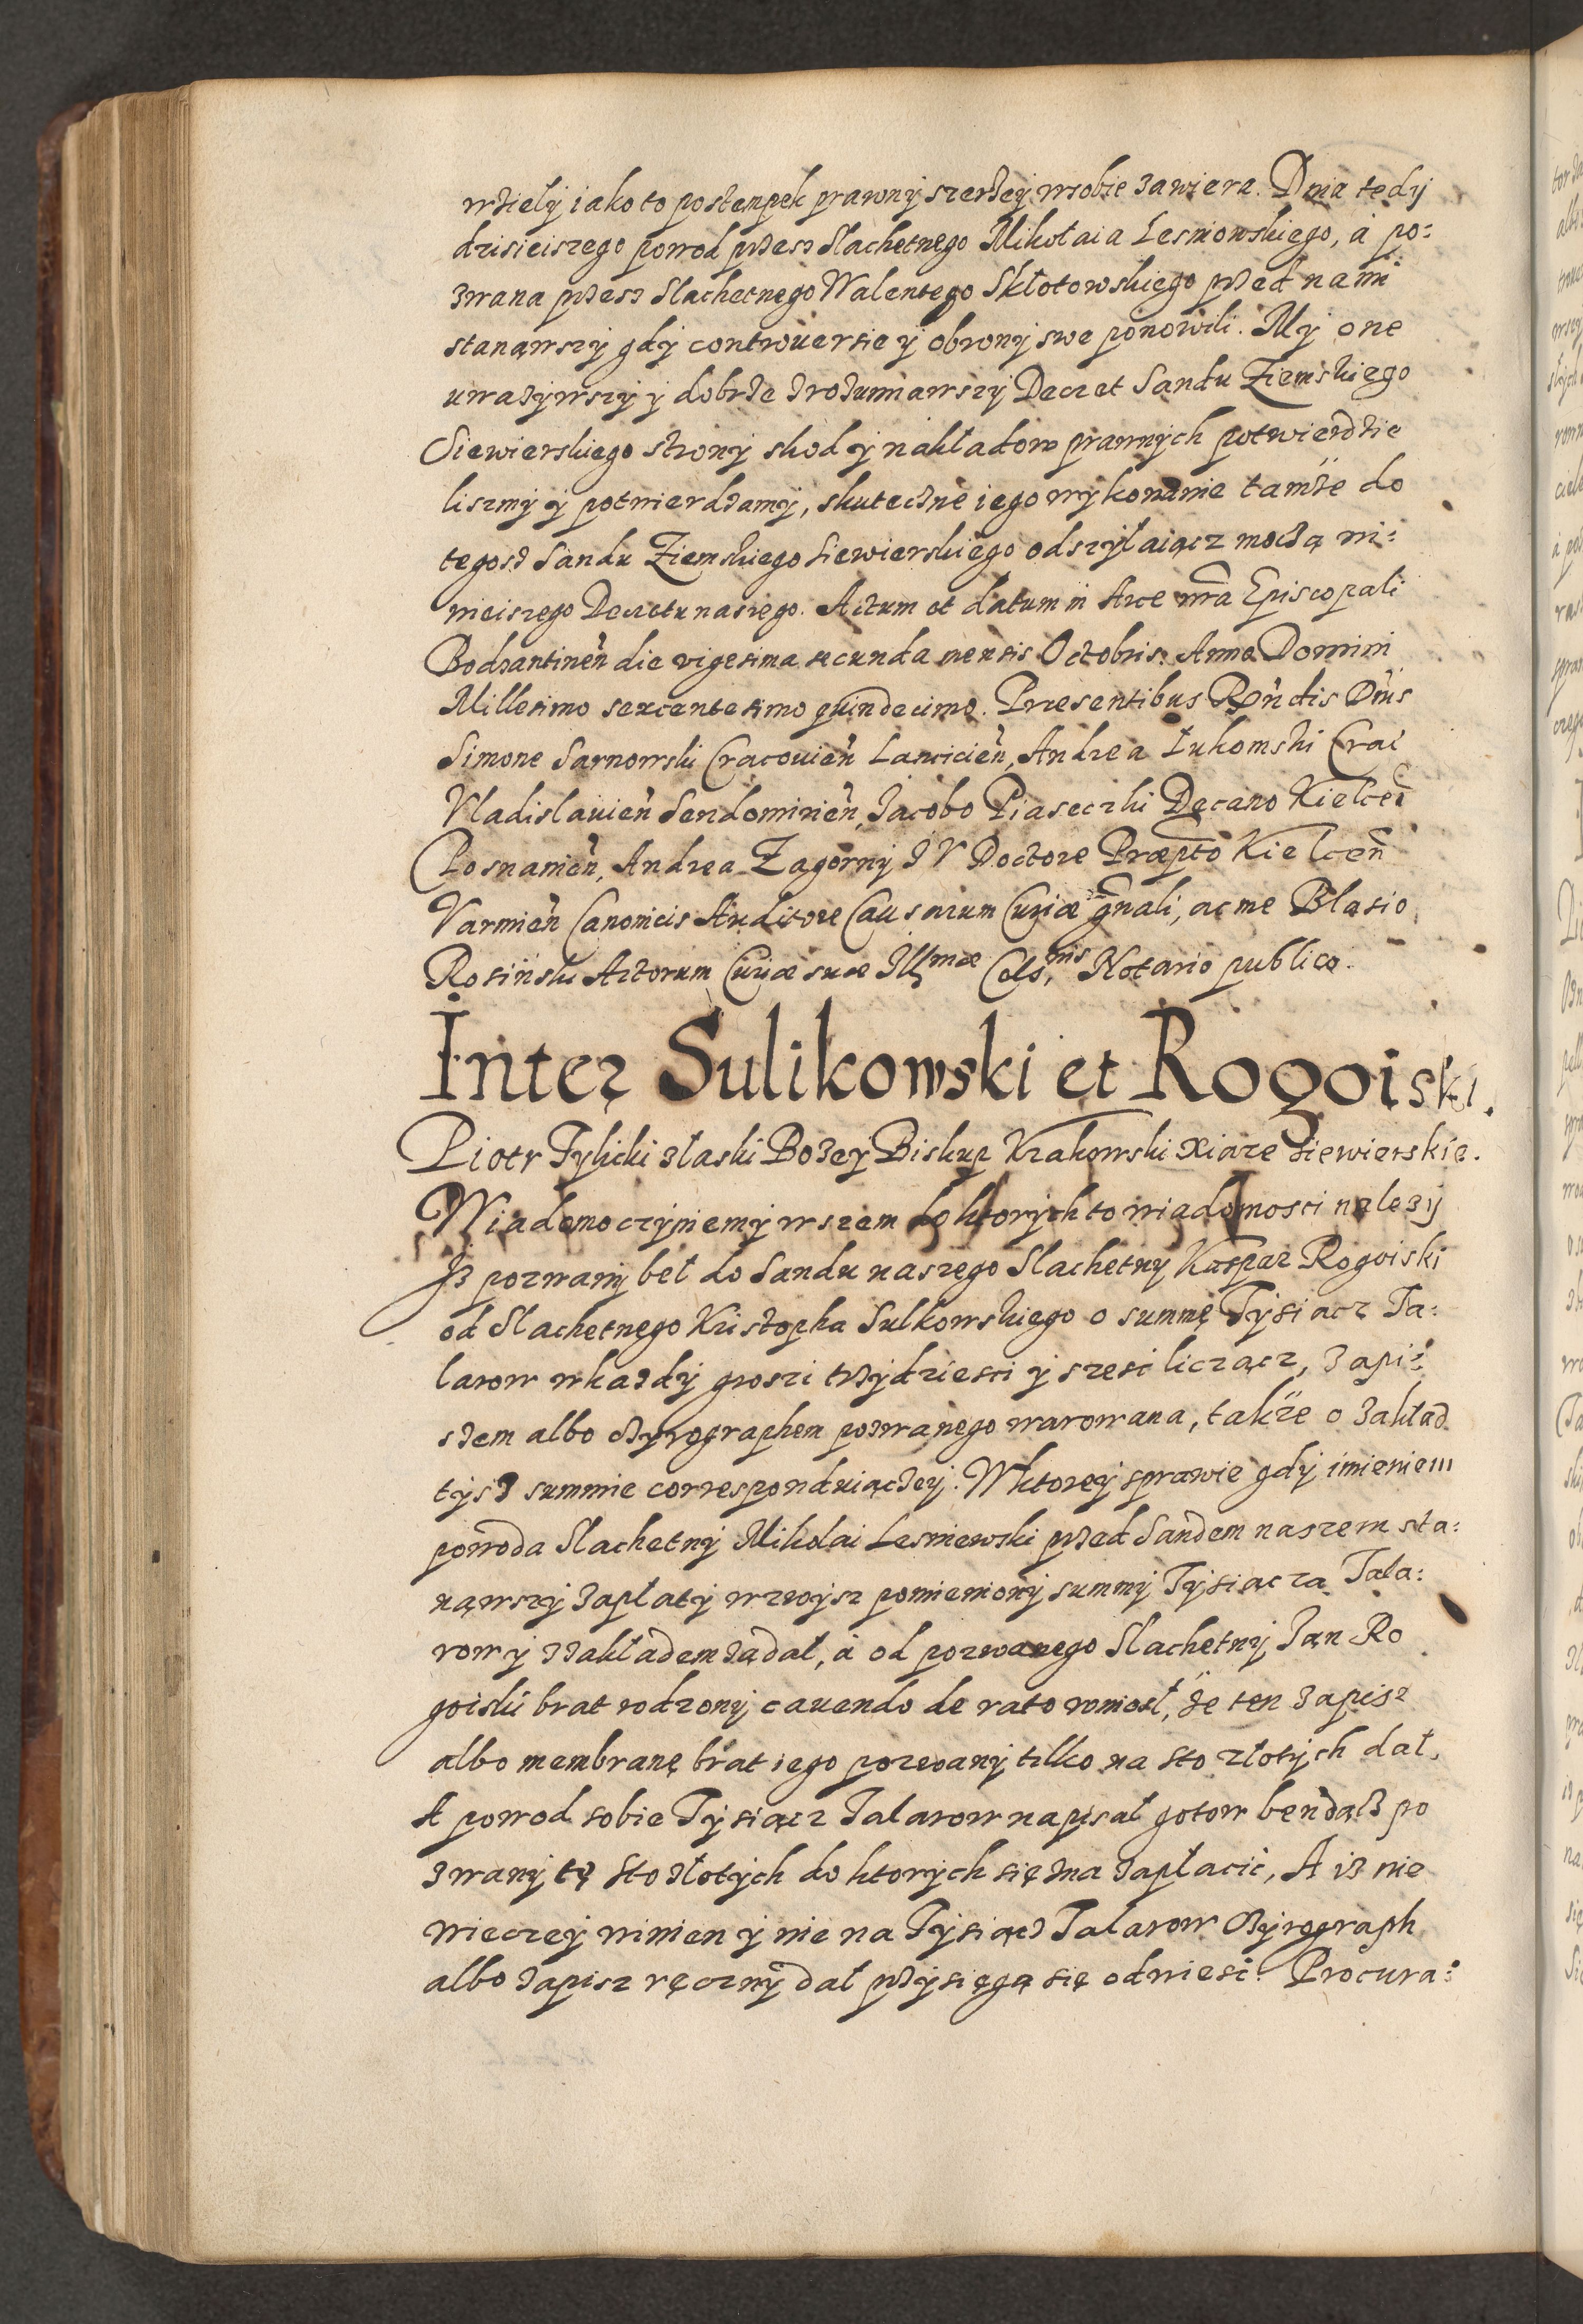 wzieły iako to postempek prawny szerzey wsobie zawiera. Dnia tedy
dzisieiszego powod przesz Slachetnego Mikołaia Lesniowskiego, á po:
zwana przesz Slachetnego Walentego Skłotowskiego przed nami
stanąwszy gdy controuersie y obrony swe ponowili. My one
uwazywszy y dobrze zrozumiawszy Decret Sandu Ziemskiego
Siewierskiego strony skod y nakładow prawnych potwierdzie
liszmy y potwierdzamy, skuteczne iego wykonanie tamże do
tegosz Sandu Ziemskiego Siewierskiego odszyłaiącz moczą ni:
nieiszego Decretu naszego. Actum et datum in Arce nra Episcopali
Bodzantinen̄ die vigesima secunda mensis Octobris Anno Domini
Millesimo sexcentesimo quindecimo. Præsentibus Rñdis Dñis
Simone Sarnowski Cracouien̄ Lancicien̄, Andrea Łukomski Crac
Vladislauien̄ Sendomirien̄, Jacobo Piaseczki Decano Kielcen̄
Posnanien̄, Andrea Zagorny J V Doctore Præpto Kielcen̄
Varmien̄ Canonicis Auditore Causarum Curiæ gñali, ac me Blasio
Rosinski Actorum Curiæ suæ Illmæ Cels,nis Notario publico.
Inter Sulikowski et Rogoiski.
Piotr Tylicki złaski Bozey Biskup Krakowski Xiaze Siewierskie.
Wiadomo czyniemy wszem do ktorych to wiadomosci nalezy
Jz pozwany beł do Sandu naszego Slachetny Kaspar Rogoiski
od Slachetnego Kristopha Sulkowskiego o summę Tysiacz Ta:
larow wkazdy groszi trzydziesci y szesć licząc, zapi:
szem albo czyrographem pozwanego warowana, także o zakład
tysz summie correspondruiączey. Wktorey sprawie gdy imieniem
powoda Slachetny Mikolai Lesniewski przed Sandem naszem sta:
nąwszy zapłaty wzwysz pomieniony summy Tysiącza Tala:
row y zzakładem ządał, á od pozwanego Slachetny Jan Ro
goiski brat rodzony cauendo de rato wniosł, że ten zapisz
albo membranę brat iego pozwany tilko na sto złotych dał,
A powod sobie Tysiącz Talarow napisał gotow bendącz po
zwany tę sto złotych do ktorych się zna zapłacić, A iz nie
wieczey winien y nie na Tysiącz Talarow czyrograph
albo zapisz ręczny dał przysięgą się odwiesć. Procura: